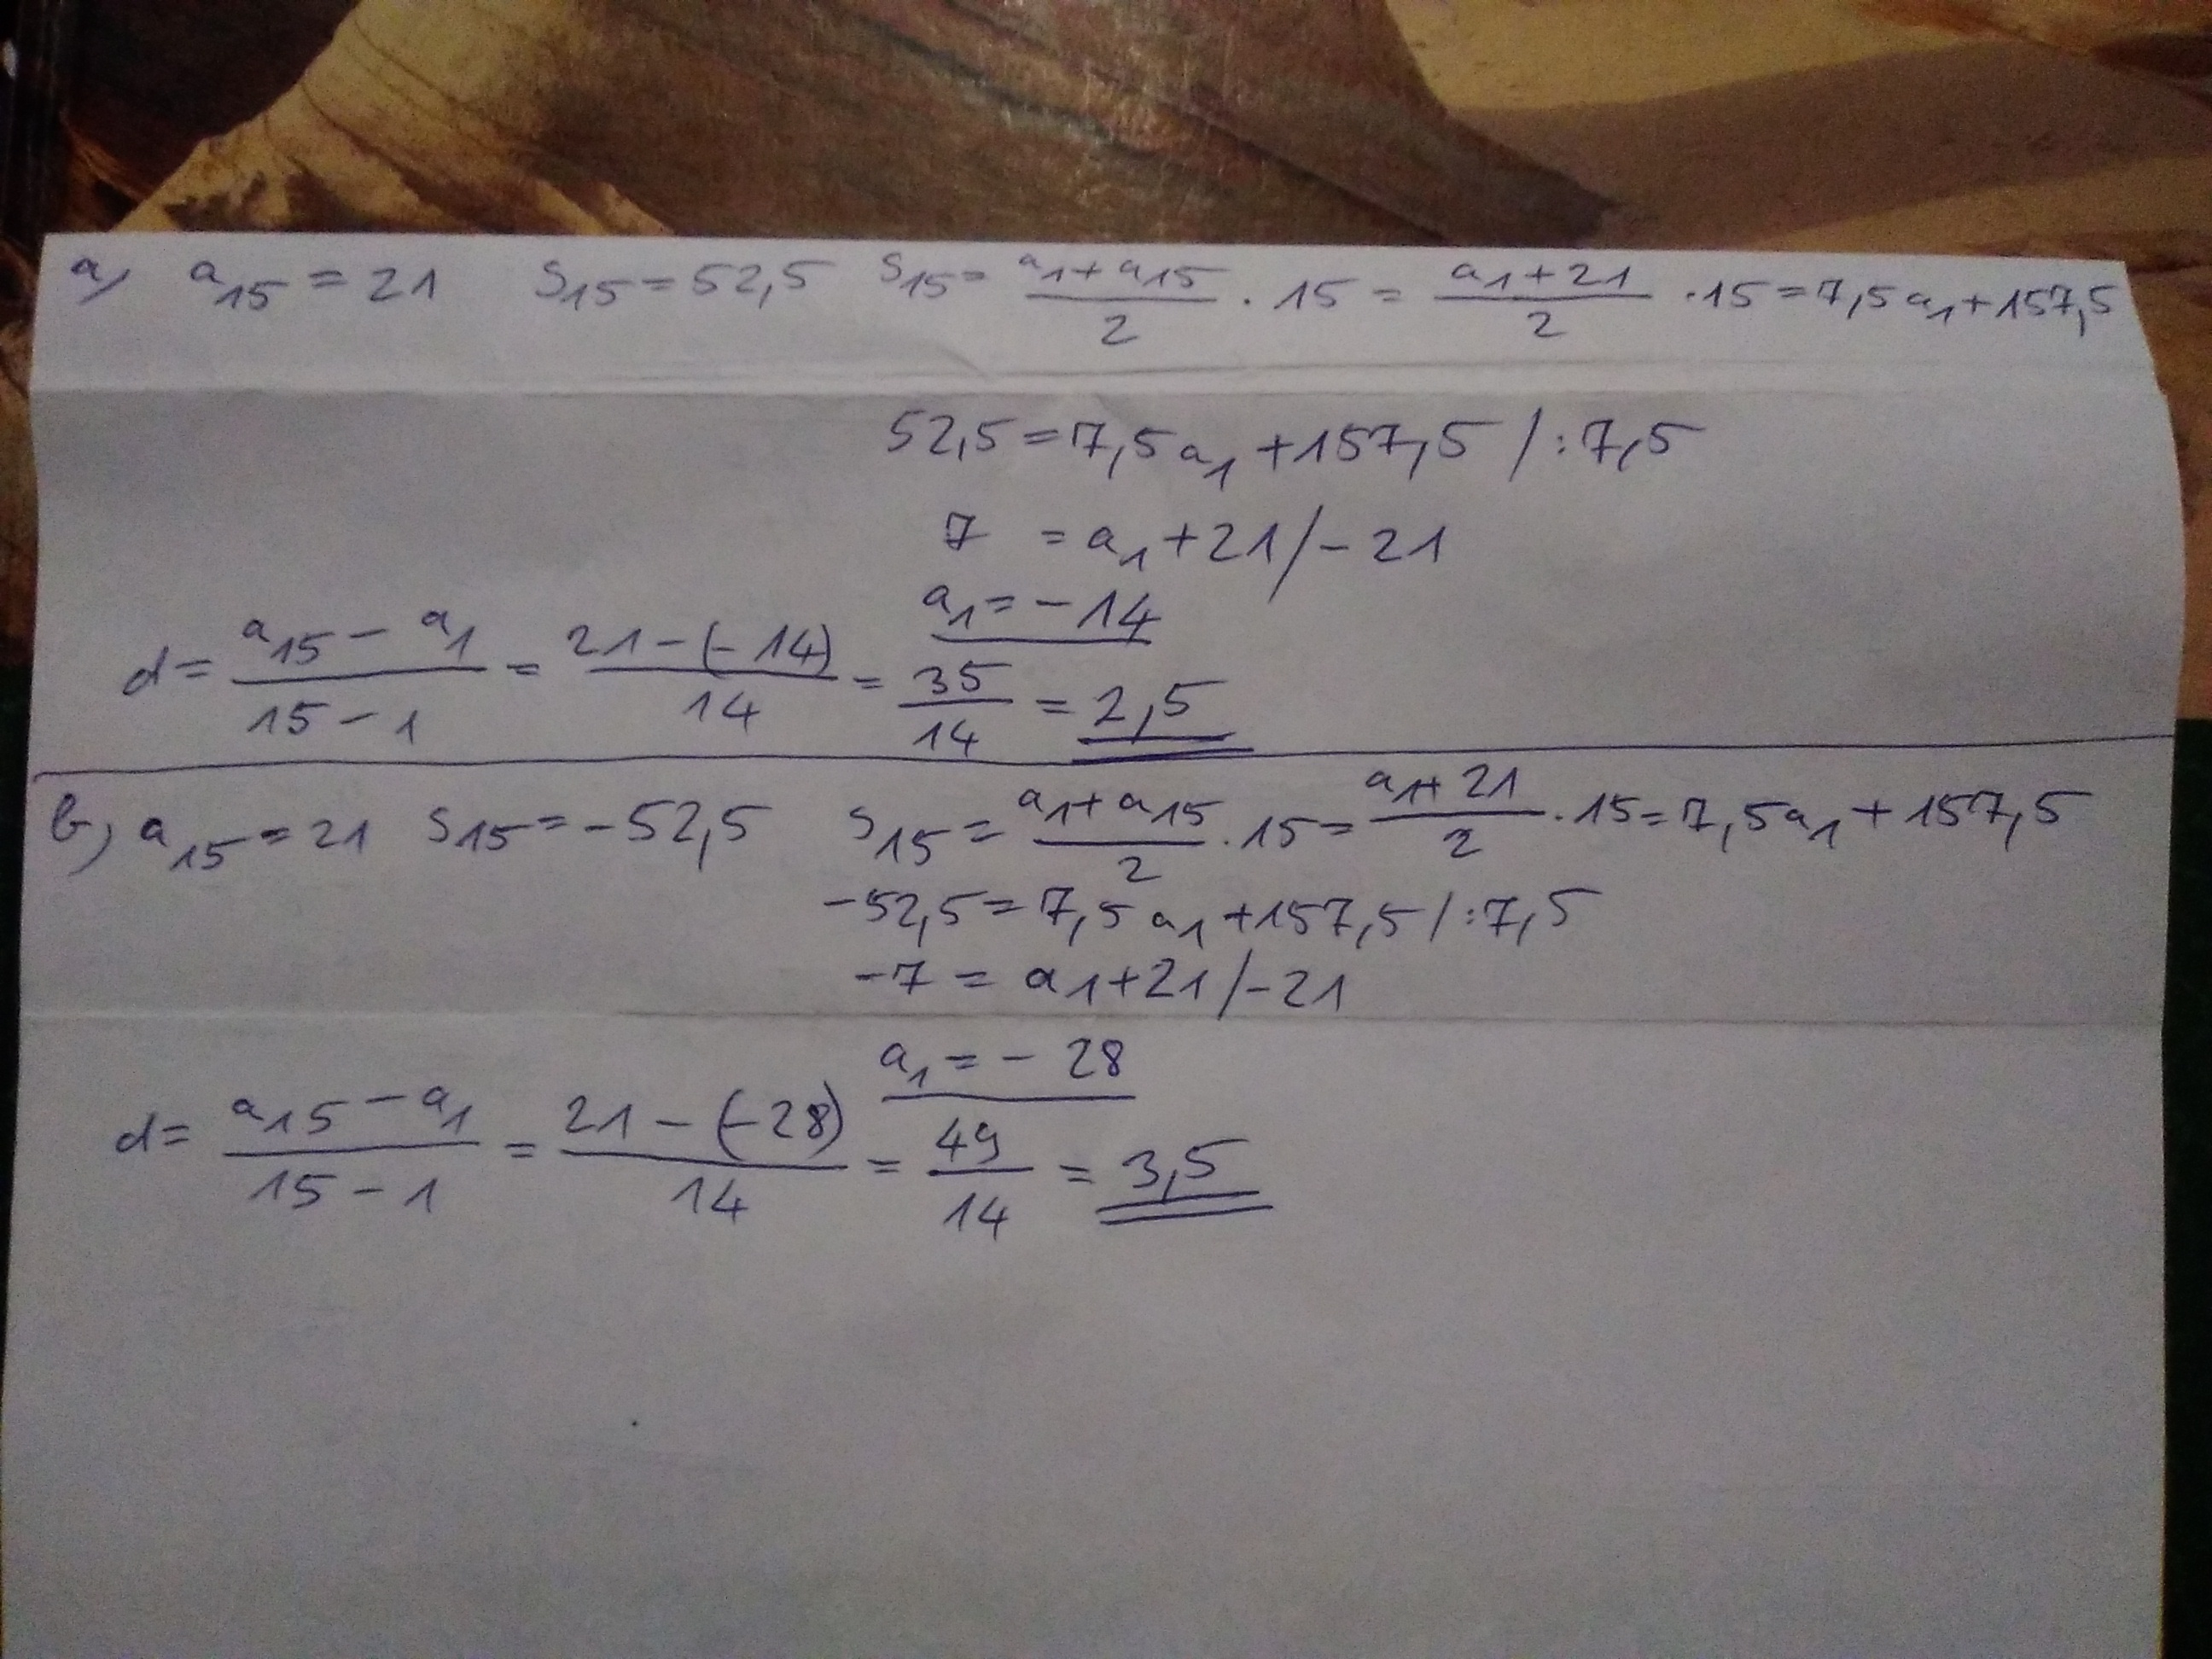 a) a₁₅ = 21 S₁₅ = 52,5 S₁₅ = (a₁ + a₁₅)/2 · 15 = (a₁ + 21)/2 · 15 = 7,5a₁ + 157,5
52,5 = 7,5a₁ + 157,5 / : 7,5
7 = a₁ + 21 / - 21
a₁ = - 14
d = (a₁₅ - a₁)/(15 - 1) = (21 - (-14))/14 = 35/14 = 2,5
b) a₁₅ = 21 S₁₅ = - 52,5 S₁₅ = (a₁ + a₁₅)/2 · 15 = (a₁ + 21)/2 · 15 = 7,5a₁ + 157,5
-52,5 = 7,5a₁ + 157,5 / : 7,5
-7 = a₁ + 21 / - 21
a₁ = - 28
d = (a₁₅ - a₁)/(15 - 1) = (21 - (-28))/14 = 49/14 = 3,5